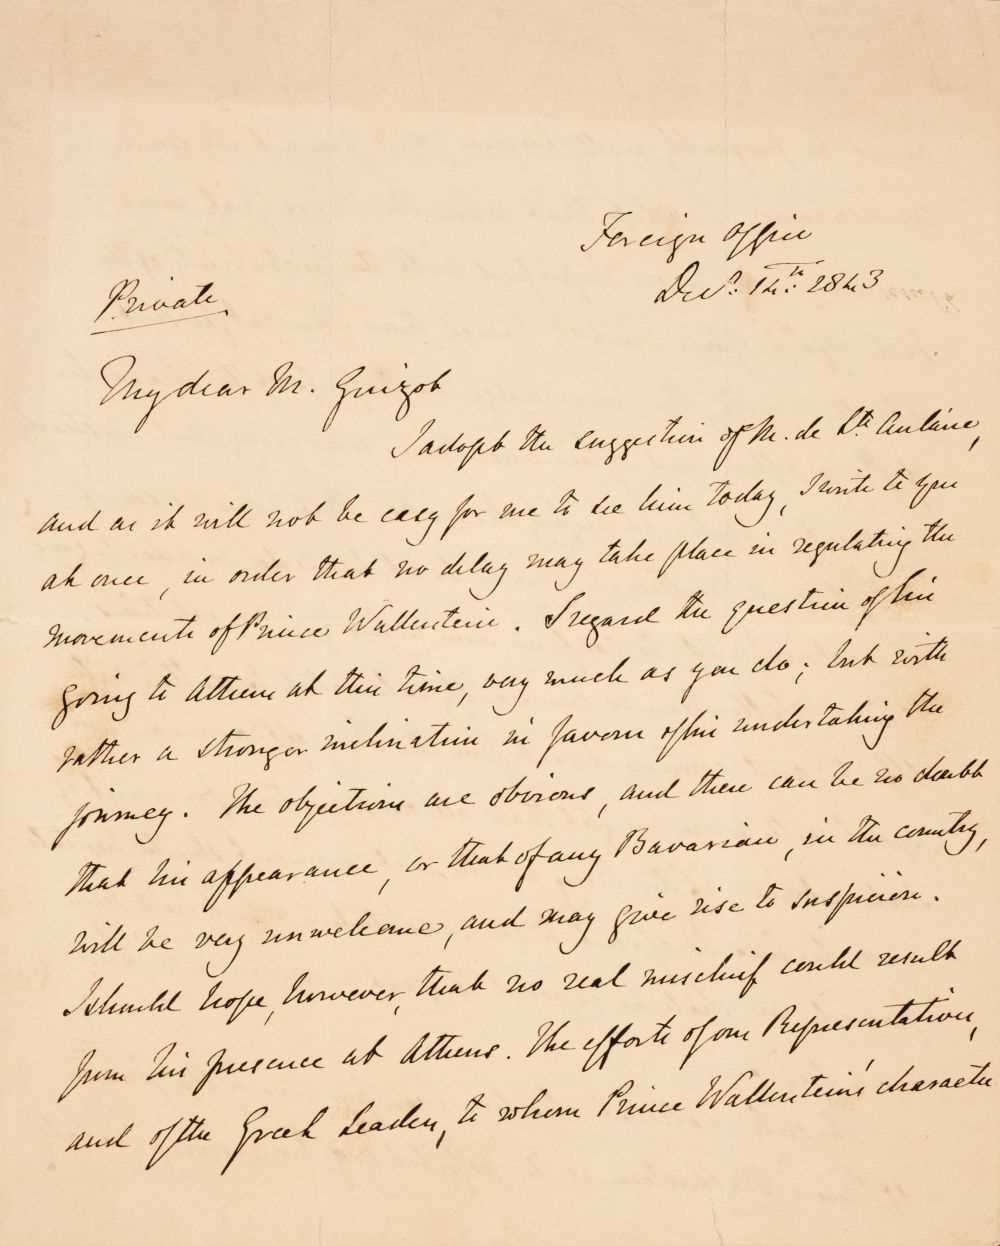 Foreign Office
Decr. 14th: 1843
Private
My dear M. Guizot
I adopt the suggestion of M. de Ste. Aulaire,
and as it will not be easy for me to see him today, I write to you
at once, in order that no delay may take place in regulating the
movements of Prince Wallenstein. I regard the question of his
going to Athens at this time, very much as you do; but with
rather a stronger inclination in favour of his undertaking the
journey. The objections are obvious, and there can be no doubt
that his appearance, or that of any Bavarian, in the country,
will be very unwelcome, and may give rise to suspicion.
I should hope, however, that no real mischief could result
from his presence at Athens. The efforts of our Representatives,
and of the Greek Leaders, to whom Prince Wallenstein's character